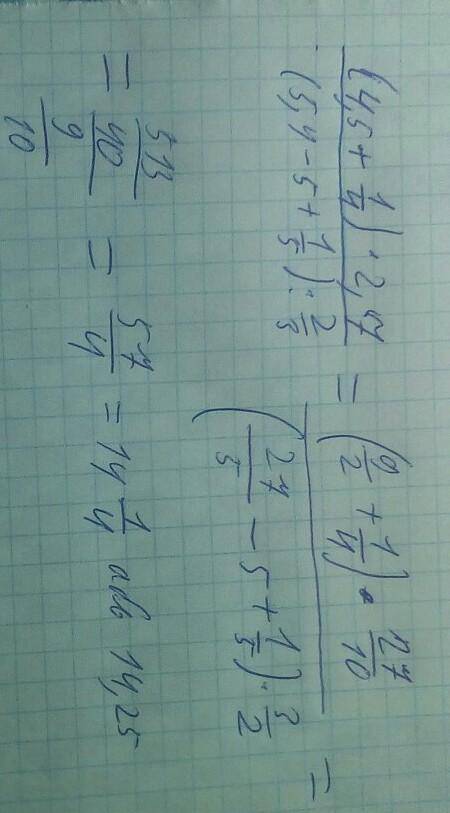 (4,5 + 1/4) · 2,7 / (5,4 - 5 + 1/5) : 2/3 = (9/2 + 1/4) · 27/10 / (27/5 - 5 + 1/5) · 3/2 =
= 513/40 / 9/10 = 57/4 = 14 1/4 або 14,25